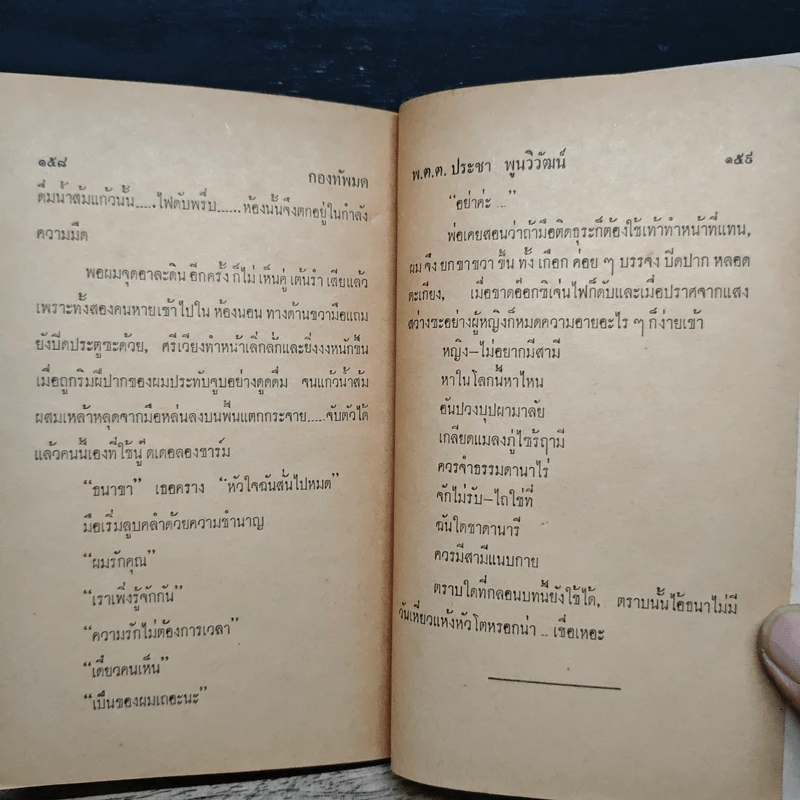 ๑๕๘
กองทัพมด
ดื่มน้ำส้มแก้วนั้น.....ไฟดับพรึ่บ......ห้องนั้นจึงตกอยู่ในกำลัง
ความมืด
พอผมจุดอาละดิน อีกครั้ง ก็ไม่ เห็นคู่ เต้นรำ เสียแล้ว
เพราะทั้งสองคนหายเข้าไปใน ห้องนอน ทางด้านขวามือแถม
ยังปิดประตูซะด้วย, ศรีเวียงทำหน้าเลิ่กลั่กและยิ่งงงหนักขึ้น
เมื่อถูกริมฝีปากของผมประทับจูบอย่างดูดดื่ม จนแก้วน้ำส้ม
ผสมเหล้าหลุดจากมือหล่นลงบนพื้นแตกกระจาย.....จับตัวได้
แล้วคนนี้เองที่ใช้นู๊ ดเดอลองชาร์ม
“ธนาขา” เธอคราง “หัวใจฉันสั่นไปหมด”
มือเริ่มลูบคลำด้วยความชำนาญ
“ผมรักคุณ”
“เราเพิ่งรู้จักกัน”
“ความรักไม่ต้องการเวลา”
“เดี๋ยวคนเห็น”
“เป็นของผมเถอะนะ”
พ.ต.ต. ประชา พูนวิวัฒน์
๑๕๙
“อย่าค่ะ ...”
พ่อเคยสอนว่าถ้ามือติดธุระก็ต้องใช้เท้าทำหน้าที่แทน,
ผม จึง ยก ขา ขวา ขึ้น ทั้ง เกือก ค่อย ๆ บรรจง ปิดปาก หลอด
ตะเกียง, เมื่อขาดอ๊อกซิเจ่นไฟก็ดับและเมื่อปราศจากแสง
สว่างซะอย่างผู้หญิงก็หมดความอายอะไร ๆ ก็ง่ายเข้า
หญิง–ไม่อยากมีสามี
หาในโลกนี้หาไหน
อันปวงบุปผามาลัย
เกลียดแมลงภู่ไซร้ฤามี
ควรจำธรรมดานาไร่
จักไม่รับ–ไถใช่ที่
ฉันใดชาดานารี
ควรมีสามีแนบกาย
ตราบใดที่กลอนบทนี้ยังใช้ได้, ตราบนั้นไอ้ธนาไม่มี
วันเหี่ยวแห้งหัวโตหรอกน่า .. เชื่อเหอะ